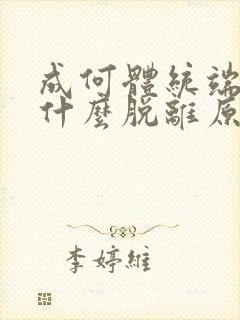 成何體統端
什麼脫離原
李婷維